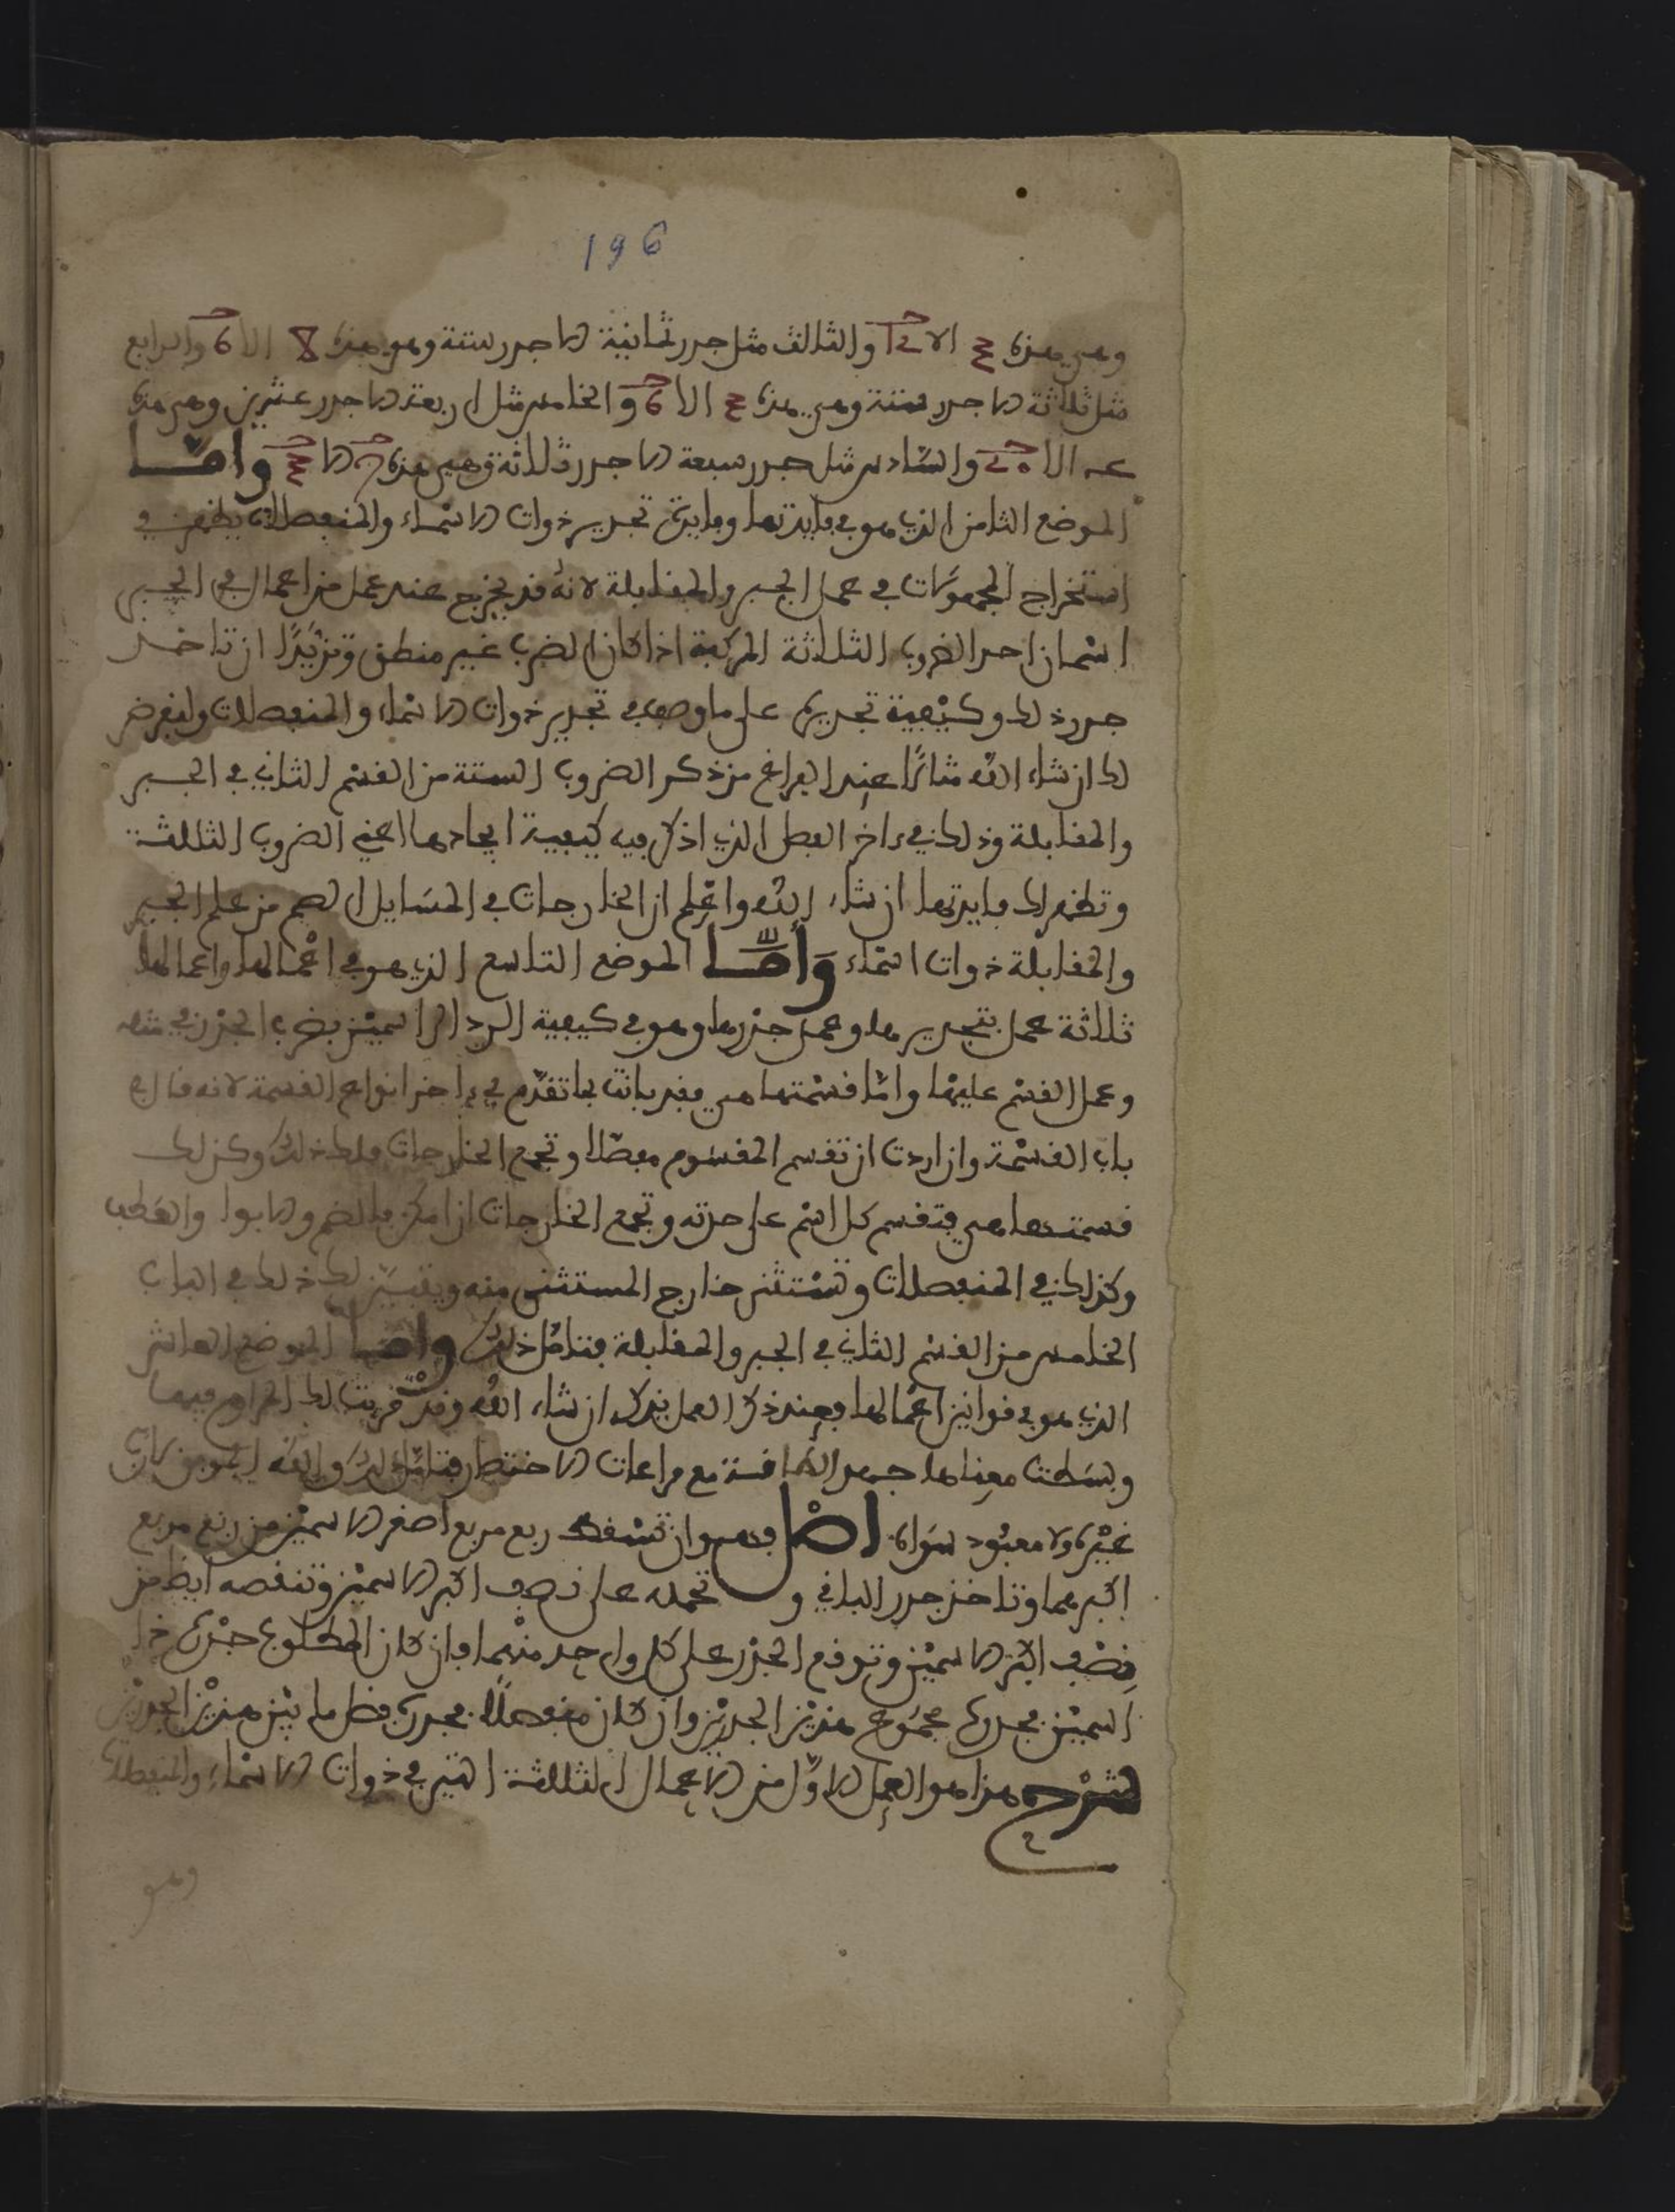 196
وهي هذه الا والثالث مثل جدر ثمانية الا جدر ستة وهو هذه 8 الا 6 والرابع
مثل ثلاثة الا جدر ستة وهي هذه الا 6 والخامس مثل اربعة الا جدر عشرين وهي هذه
عـ الا والسادس مثل جدر سبعة الا جدر ثلاثة وهي هذه الا وامّا
الموضع الثامن الذي هو في فايدتها وفايدة تجدير ذوات الاسماء والمنفصلات يظهر في
استخراج المجهولات في عمل الجبر والمقابلة لانه قد يخرج عند عمل من اعمال في الجبر
اسمان احد الضروب الثلاثة المركبة اذا كان الضرب غير منطق وتريد ان تاخذ
جدر ذلك وكيفية تجديره على ما وصف في تجدير ذوات الاسماء والمنفصلات ولنفرض
لك ان شاء الله مثالا عند الفراغ من ذكر الضروب الستة من القسم الثاني في الجبر
والمقابلة وذلك في ءاخر الفصل الذي اذكر فيه كيفية ايجادها اعني الضروب الثلثة
وتظهر لك فايدتها ان شاء الله واعلم ان الخارجات في المسايل الصم من علم الجبر
والمقابلة ذوات اسماء وَأمّا الموضع التاسع الذي هو في اعمالها واعمالها
ثلاثة عمل تجديرها وعمل جذرها وهو في كيفية الرد الى اسمين بضرب الجزر في مثله
وعمل القسم عليها وامّا قسمتها هي فقد بانت بما تقدّم في ءاخر انواع القسمة لانه قال في
باب القسمة وان اردت ان تقسم المقسوم مفصّلا وتجمع الخارجات فلك ذلك وكذلك
قسمتها هي فتقسم كل اسم على حدته وتجمع الخارجات ان امكن بالضم والا بواو العطف
وكذلك في المنفصلات وتستثني خارج المستثنى منه ويتبين لك ذلك في الباب
الخامس من القسم الثاني في الجبر والمقابلة فتامل ذلك وامّا الموضع العاشر
الذي هو في قوانين اعمالها فعند ذكر العمل يذكر ان شاء الله وقد قربت لك المرام فيها
وبسطت معناها جهد الطاقة مع مراعات الاختصار فتامّل ذلك والله الموفق لا رب
غيره ولا معبود سواه اصل فهو ان تسقط ربع مربع اصغر الاسمين من ربع مربع
اكبرهما وتاخذ جدر الباقي وتحمله على نصف اكبر الاسمين وتنقصه ايضا من
نصف اكبر الاسمين وتوقع الجذر على كل واحد منهما فان كان المطلوع جذره ذا
اسمين فجدره مجموع هذين الجدرين وان كان منفصلًا فجدره فضل ما بين هذين الجدرين
شرح هذا هو العمل الاوّل من الاعمال الثلثة التي في ذوات الاسماء والمنفصلات
وهو